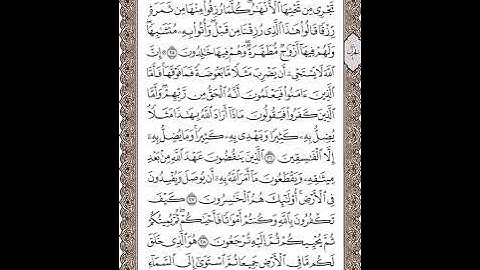 تَجْرِي مِن تَحْتِهَا ٱلْأَنْهَٰرُ ۖ كُلَّمَا رُزِقُوا۟ مِنْهَا مِن ثَمَرَةٍ
رِّزْقًا ۙ قَالُوا۟ هَٰذَا ٱلَّذِى رُزِقْنَا مِن قَبْلُ ۖ وَأُتُوا۟ بِهِۦ مُتَشَٰبِهًا ۖ
وَلَهُمْ فِيهَآ أَزْوَٰجٌ مُّطَهَّرَةٌ ۖ وَهُمْ فِيهَا خَٰلِدُونَ ۝٢٥ إِنَّ
ٱللَّهَ لَا يَسْتَحْىِۦٓ أَن يَضْرِبَ مَثَلًا مَّا بَعُوضَةً فَمَا فَوْقَهَا ۚ فَأَمَّا
ٱلَّذِينَ ءَامَنُوا۟ فَيَعْلَمُونَ أَنَّهُ ٱلْحَقُّ مِن رَّبِّهِمْ ۖ وَأَمَّا
ٱلَّذِينَ كَفَرُوا۟ فَيَقُولُونَ مَاذَآ أَرَادَ ٱللَّهُ بِهَٰذَا مَثَلًا ۘ
يُضِلُّ بِهِۦ كَثِيرًا وَيَهْدِى بِهِۦ كَثِيرًا ۚ وَمَا يُضِلُّ بِهِۦٓ
إِلَّا ٱلْفَٰسِقِينَ ۝٢٦ ٱلَّذِينَ يَنقُضُونَ عَهْدَ ٱللَّهِ مِنۢ بَعْدِ
مِيثَٰقِهِۦ وَيَقْطَعُونَ مَآ أَمَرَ ٱللَّهُ بِهِۦٓ أَن يُوصَلَ وَيُفْسِدُونَ
فِى ٱلْأَرْضِ ۚ أُو۟لَٰٓئِكَ هُمُ ٱلْخَٰسِرُونَ ۝٢٧ كَيْفَ
تَكْفُرُونَ بِٱللَّهِ وَكُنتُمْ أَمْوَٰتًا فَأَحْيَٰكُمْ ۖ ثُمَّ يُمِيتُكُمْ
ثُمَّ يُحْيِيكُمْ ثُمَّ إِلَيْهِ تُرْجَعُونَ ۝٢٨ هُوَ ٱلَّذِى خَلَقَ
لَكُم مَّا فِى ٱلْأَرْضِ جَمِيعًا ثُمَّ ٱسْتَوَىٰٓ إِلَى ٱلسَّمَآءِ